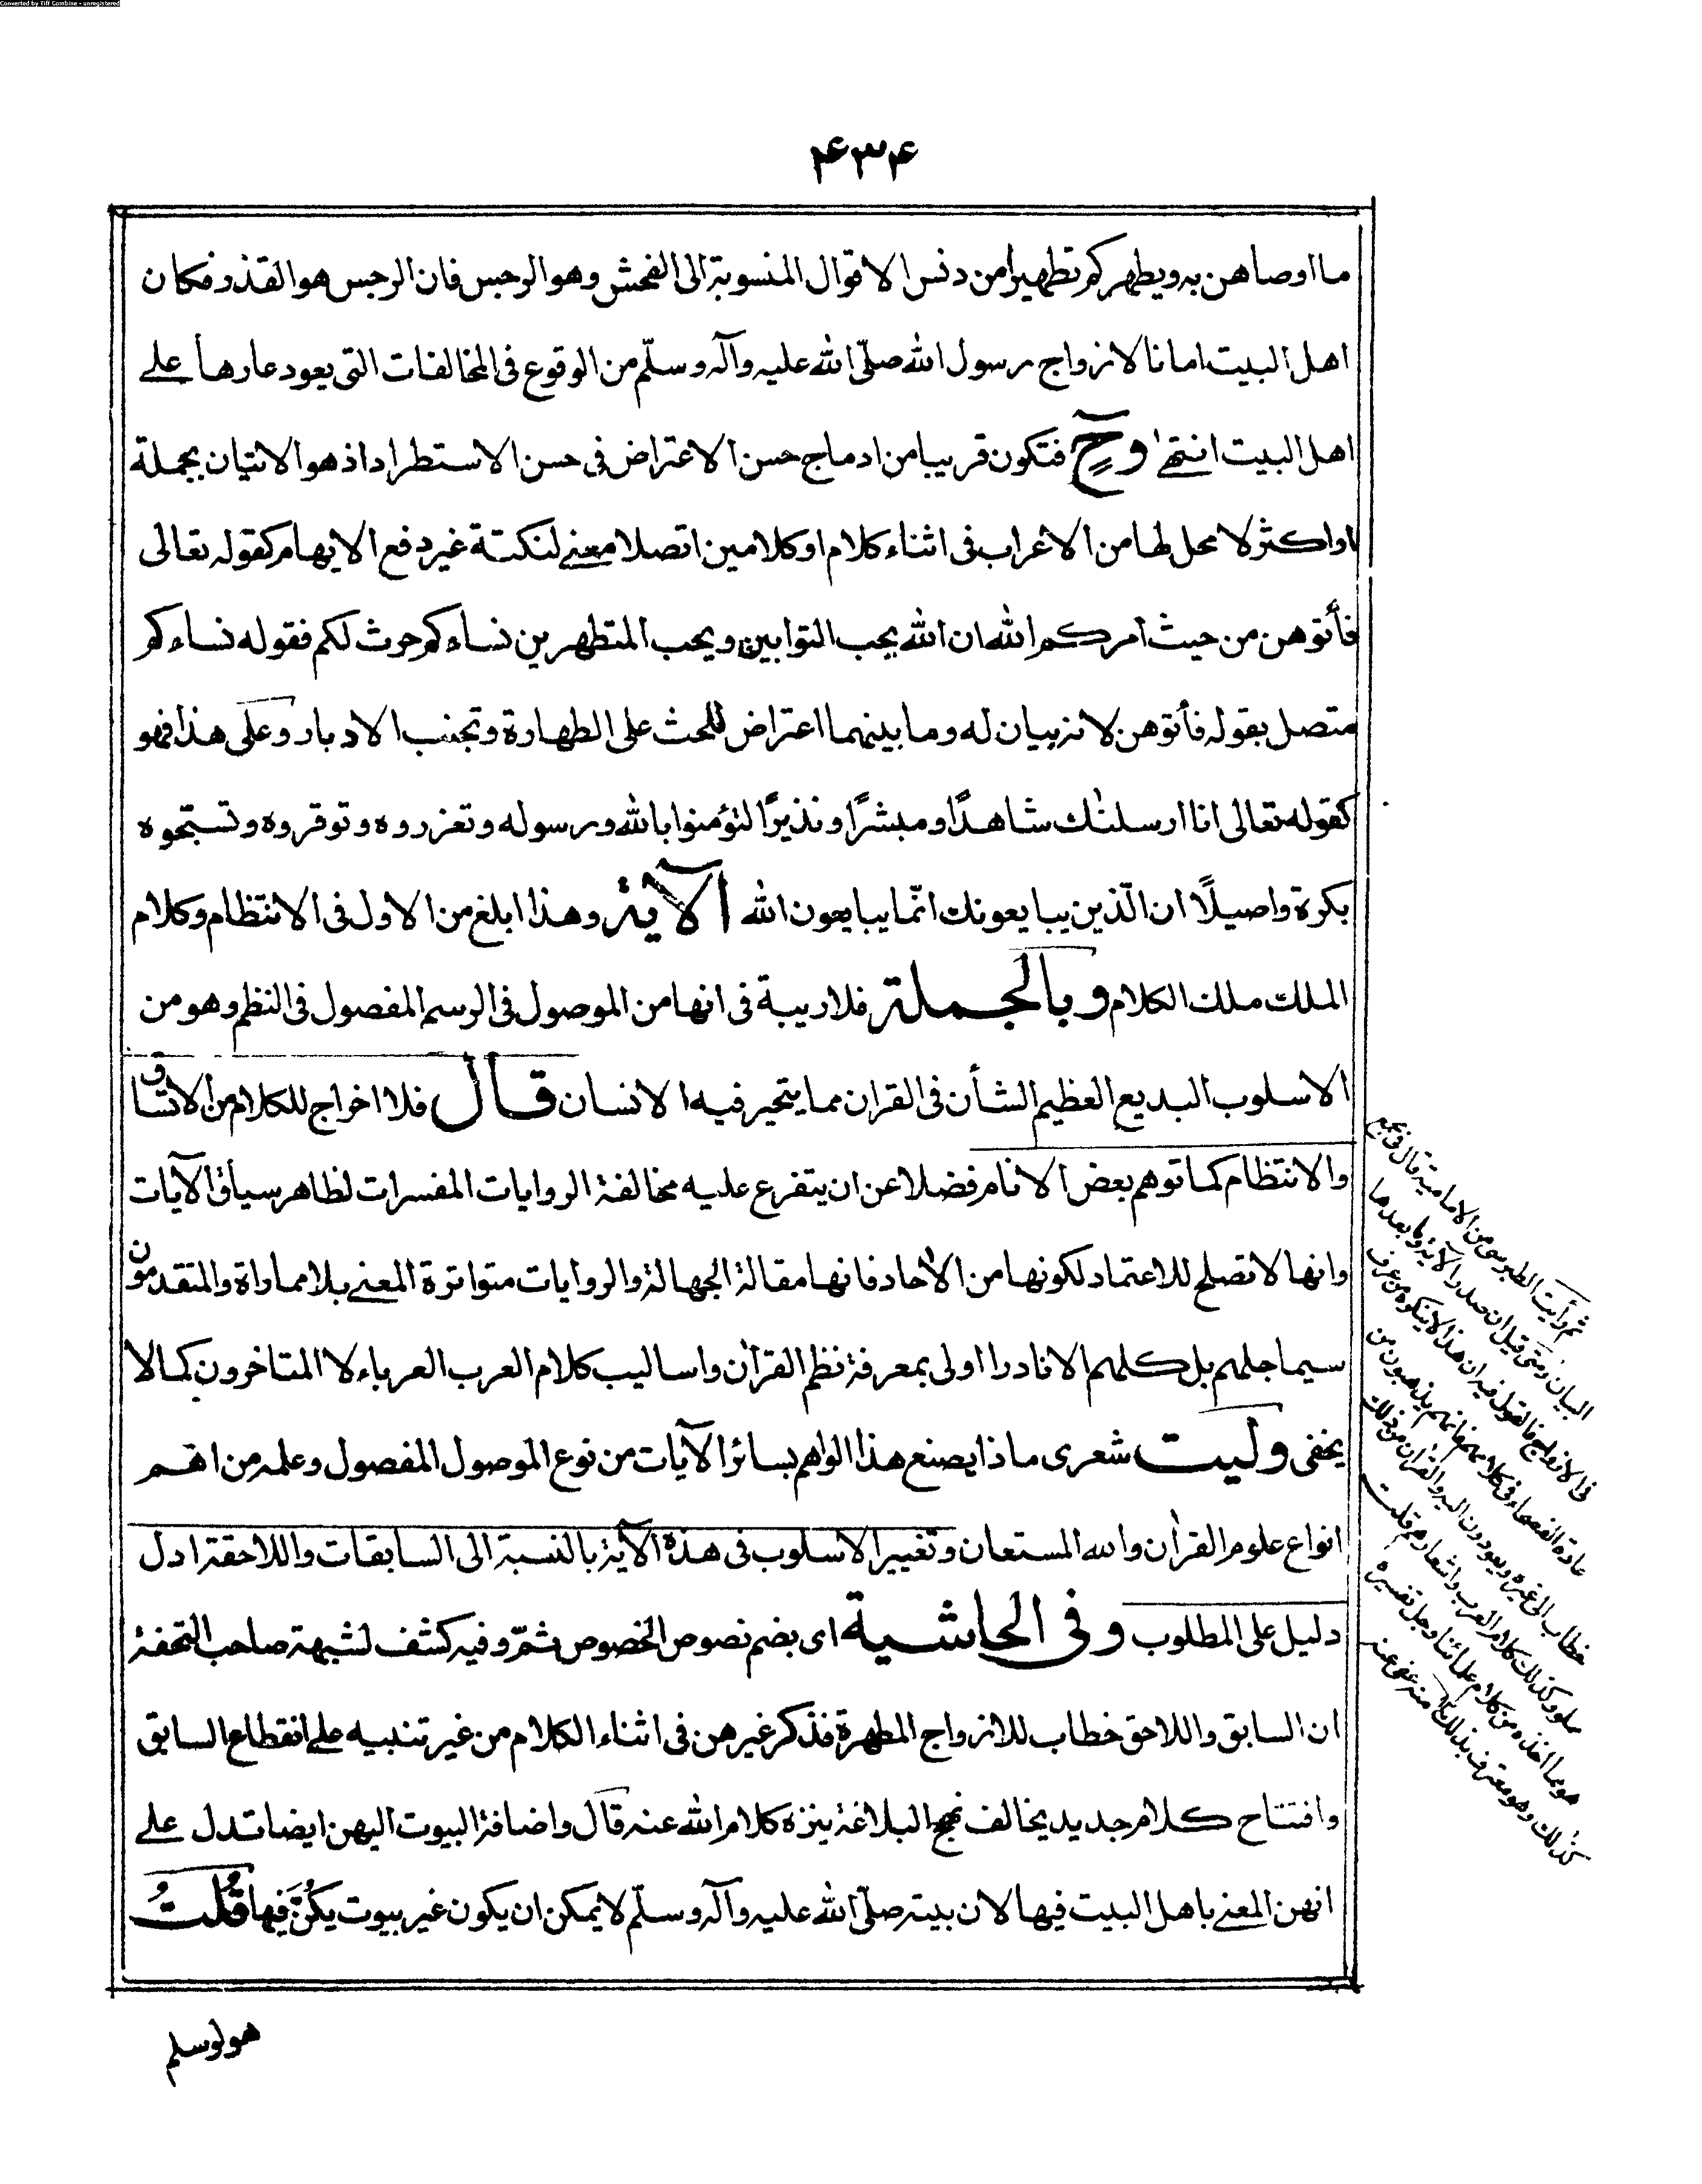 Converted by Tiff Combine - unregistered
۴۳۴
ما اوصاهن به ويطهركم تطهيرا من دنس الاقوال المنسوبة الى الفحش وهو الرجس فان الرجس هو القذر فكان
اهل البيت امانا لازواج رسول الله صلّى الله عليه وآله وسلّم من الوقوع فى المخالفات التى يعود عارها على
اهل البيت انتهى وح فتكون قريبا من ادماج حسن الاعتراض فى حسن الاستطراد اذ هو الاتيان بجملة
او اكثر لا محل لها من الاعراب فى اثناء كلام او كلامين اتصلا معنى لنكتة غير دفع الايهام كقوله تعالى
فأتوهن من حيث امركم الله ان الله يحب التوابين ويحب المتطهرين نساءكم حرث لكم فقوله نساءكم
متصل بقوله فأتوهن لانه بيان له وما بينهما اعتراض للحث على الطهارة وتجنب الادبار وعلى هذا فهو
كقوله تعالى انا ارسلنٰك شاهدًا ومبشرًا ونذيرًا لتؤمنوا بالله ورسوله وتعزروه وتوقروه وتسبحوه
بكرة واصيلًا ان الّذين يبايعونك انّما يبايعون الله الآية وهذا ابلغ من الاول فى الانتظام وكلام
الملك ملك الكلام وبالجملة فلا ريبة فى انها من الموصول فى الرسم المفصول فى النظم وهو من
الاسلوب البديع العظيم الشأن فى القران مما يتحير فيه الانسان قال فلا اخراج للكلام من الاتساق
والانتظام كما توهم بعض الانام فضلا عن ان يتفرع عليه مخالفة الروايات المفسرات لظاهر سياق الآيات
وانها لا تصلح للاعتماد لكونها من الاٰحاد فانها مقالة الجهالة والروايات متواترة المعنى بلا مماراة والمتقدمون
سيما جلهم بل كلهم الا نادرا اولى بمعرفة نظم القراٰن واساليب كلام العرب العرباء لا المتاخرون كما لا
يخفى وليت شعرى ماذا يصنع هذا الواهم بسائر الآيات من نوع الموصول المفصول وعلمه من اهم
انواع علوم القراٰن والله المستعان وتغيير الاسلوب فى هذه الآية بالنسبة الى السابقات واللاحقة ادل
دليل على المطلوب وفى الحاشية اى بضم نصوص الخصوص ثمّ وفيه كشف لشبهة صاحب التحفة
ان السابق واللاحق خطاب للازواج المطهرة فذكر غيرهن فى اثناء الكلام من غير تنبيه على انقطاع السابق
وافتتاح كلام جديد يخالف نهج البلاغة ينزه كلام الله عنه قال واضافة البيوت اليهن ايضا تدل على
انهن المعنى باهل البيت فيها لان بيته صلّى الله عليه وآله وسلّم لا يمكن ان يكون غير بيوت يكنّ فيها قُلتُ
ثم رأيت الطبرسى من الامامية قال فى مجمع
البيان ومتى قيل ان صدر الآية وما بعدها
فى الازواج فالقول فيه ان هذا لا ينكره من عرف
عادة الفصحاء فى كلامهم فانهم يذهبون من
خطاب الى غيره ويعودون اليه والقراٰن من ذلك
مملو وكذلك كلام العرب واشعارهم قلت
هو مما اخذه من كلام علمائنا وجل تفسيره
كذلك وهو معترف بذلك منه عفى عنه
هو لو سلم